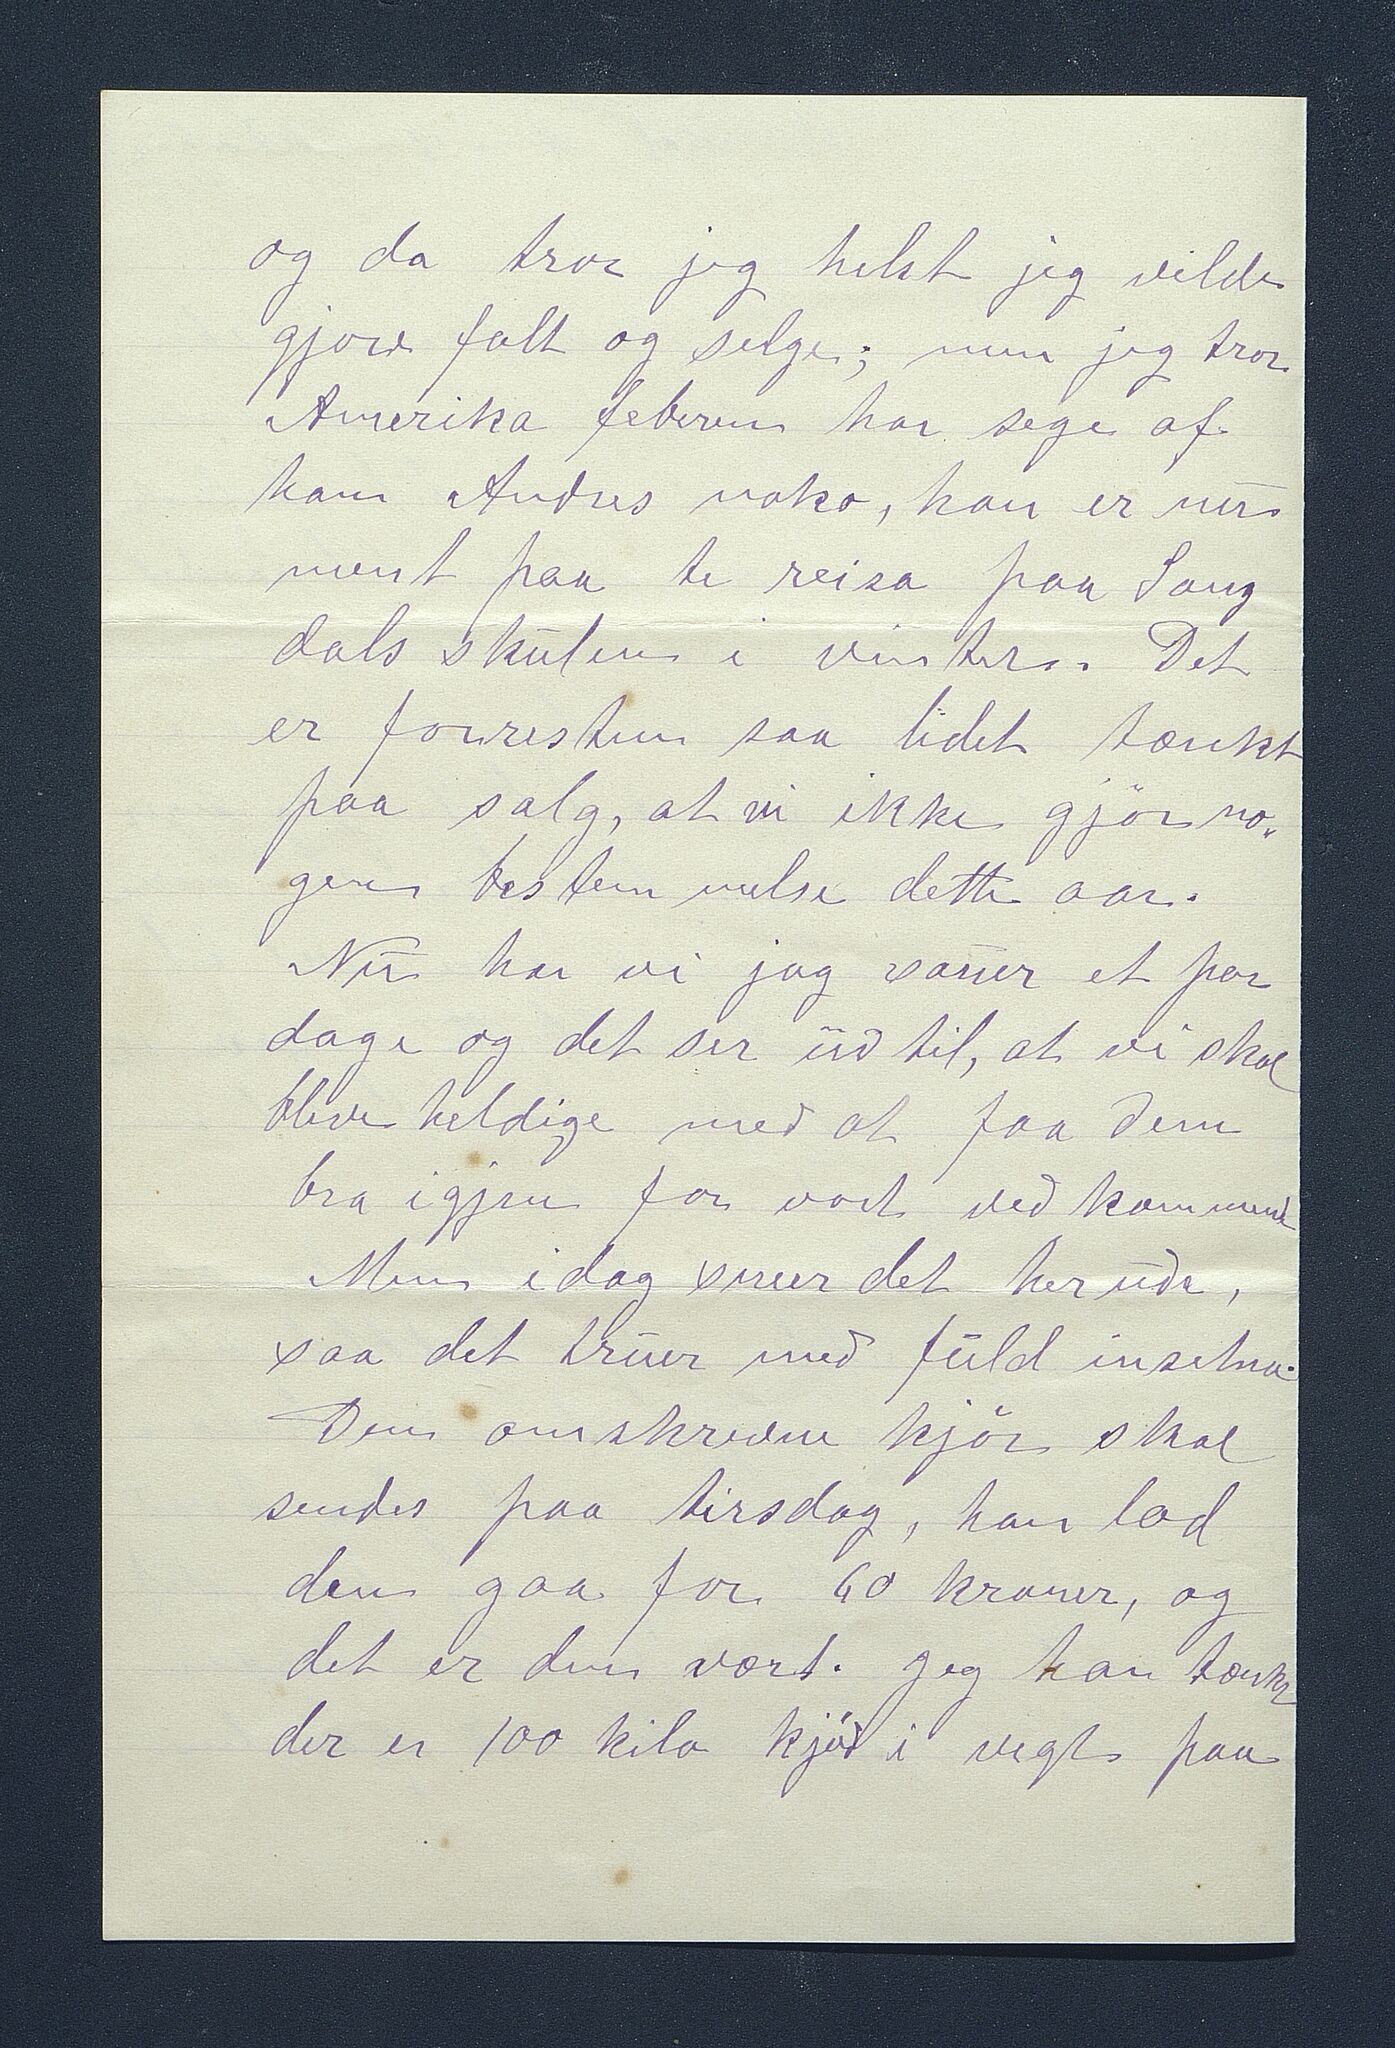 og da tror jeg helst jeg vilde
gjort falt og selge; men jeg tror
Amerika feberen har sege af
ham Andres noko, han er nūr
ment paa te reisa paa Song
dals skūlen i vinter. Det
er forresten saa lidet tænkt
paa salg, at vi ikke gjör no„
gen bestemmelse dette aar.
Nū har vi jag sauer et par
dage og det ser ūd til, at vi skal
blive heldige med at faa dem
bra igjen for vort vedkommende
Men idag sneer det her ūde,
saa det trūer med fūld insetna.
Den omskrevne kjör skal
sendes paa tirsdag, han lod
den gaa for 60 kroner, og
det er den vært. Jeg kan tænke
der er 100 kilo kjöd i vegt paa